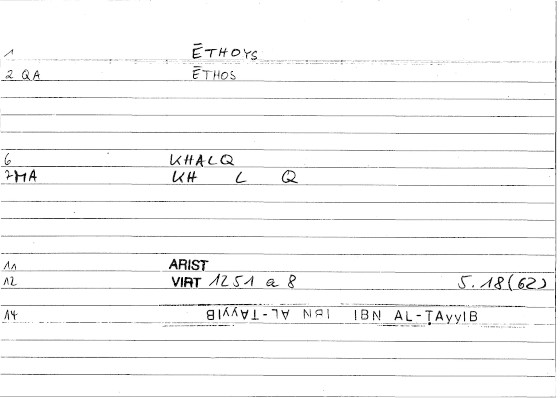 1 ĒTHOYS
2 QA ĒTHOS
6 KHALQ
7 MA KH L Q
11 ARIST
12 VIRT 1251 a 8 5.18(62)
14 IBN AL-ṬAyyIB IBN AL-ṬAyyIB